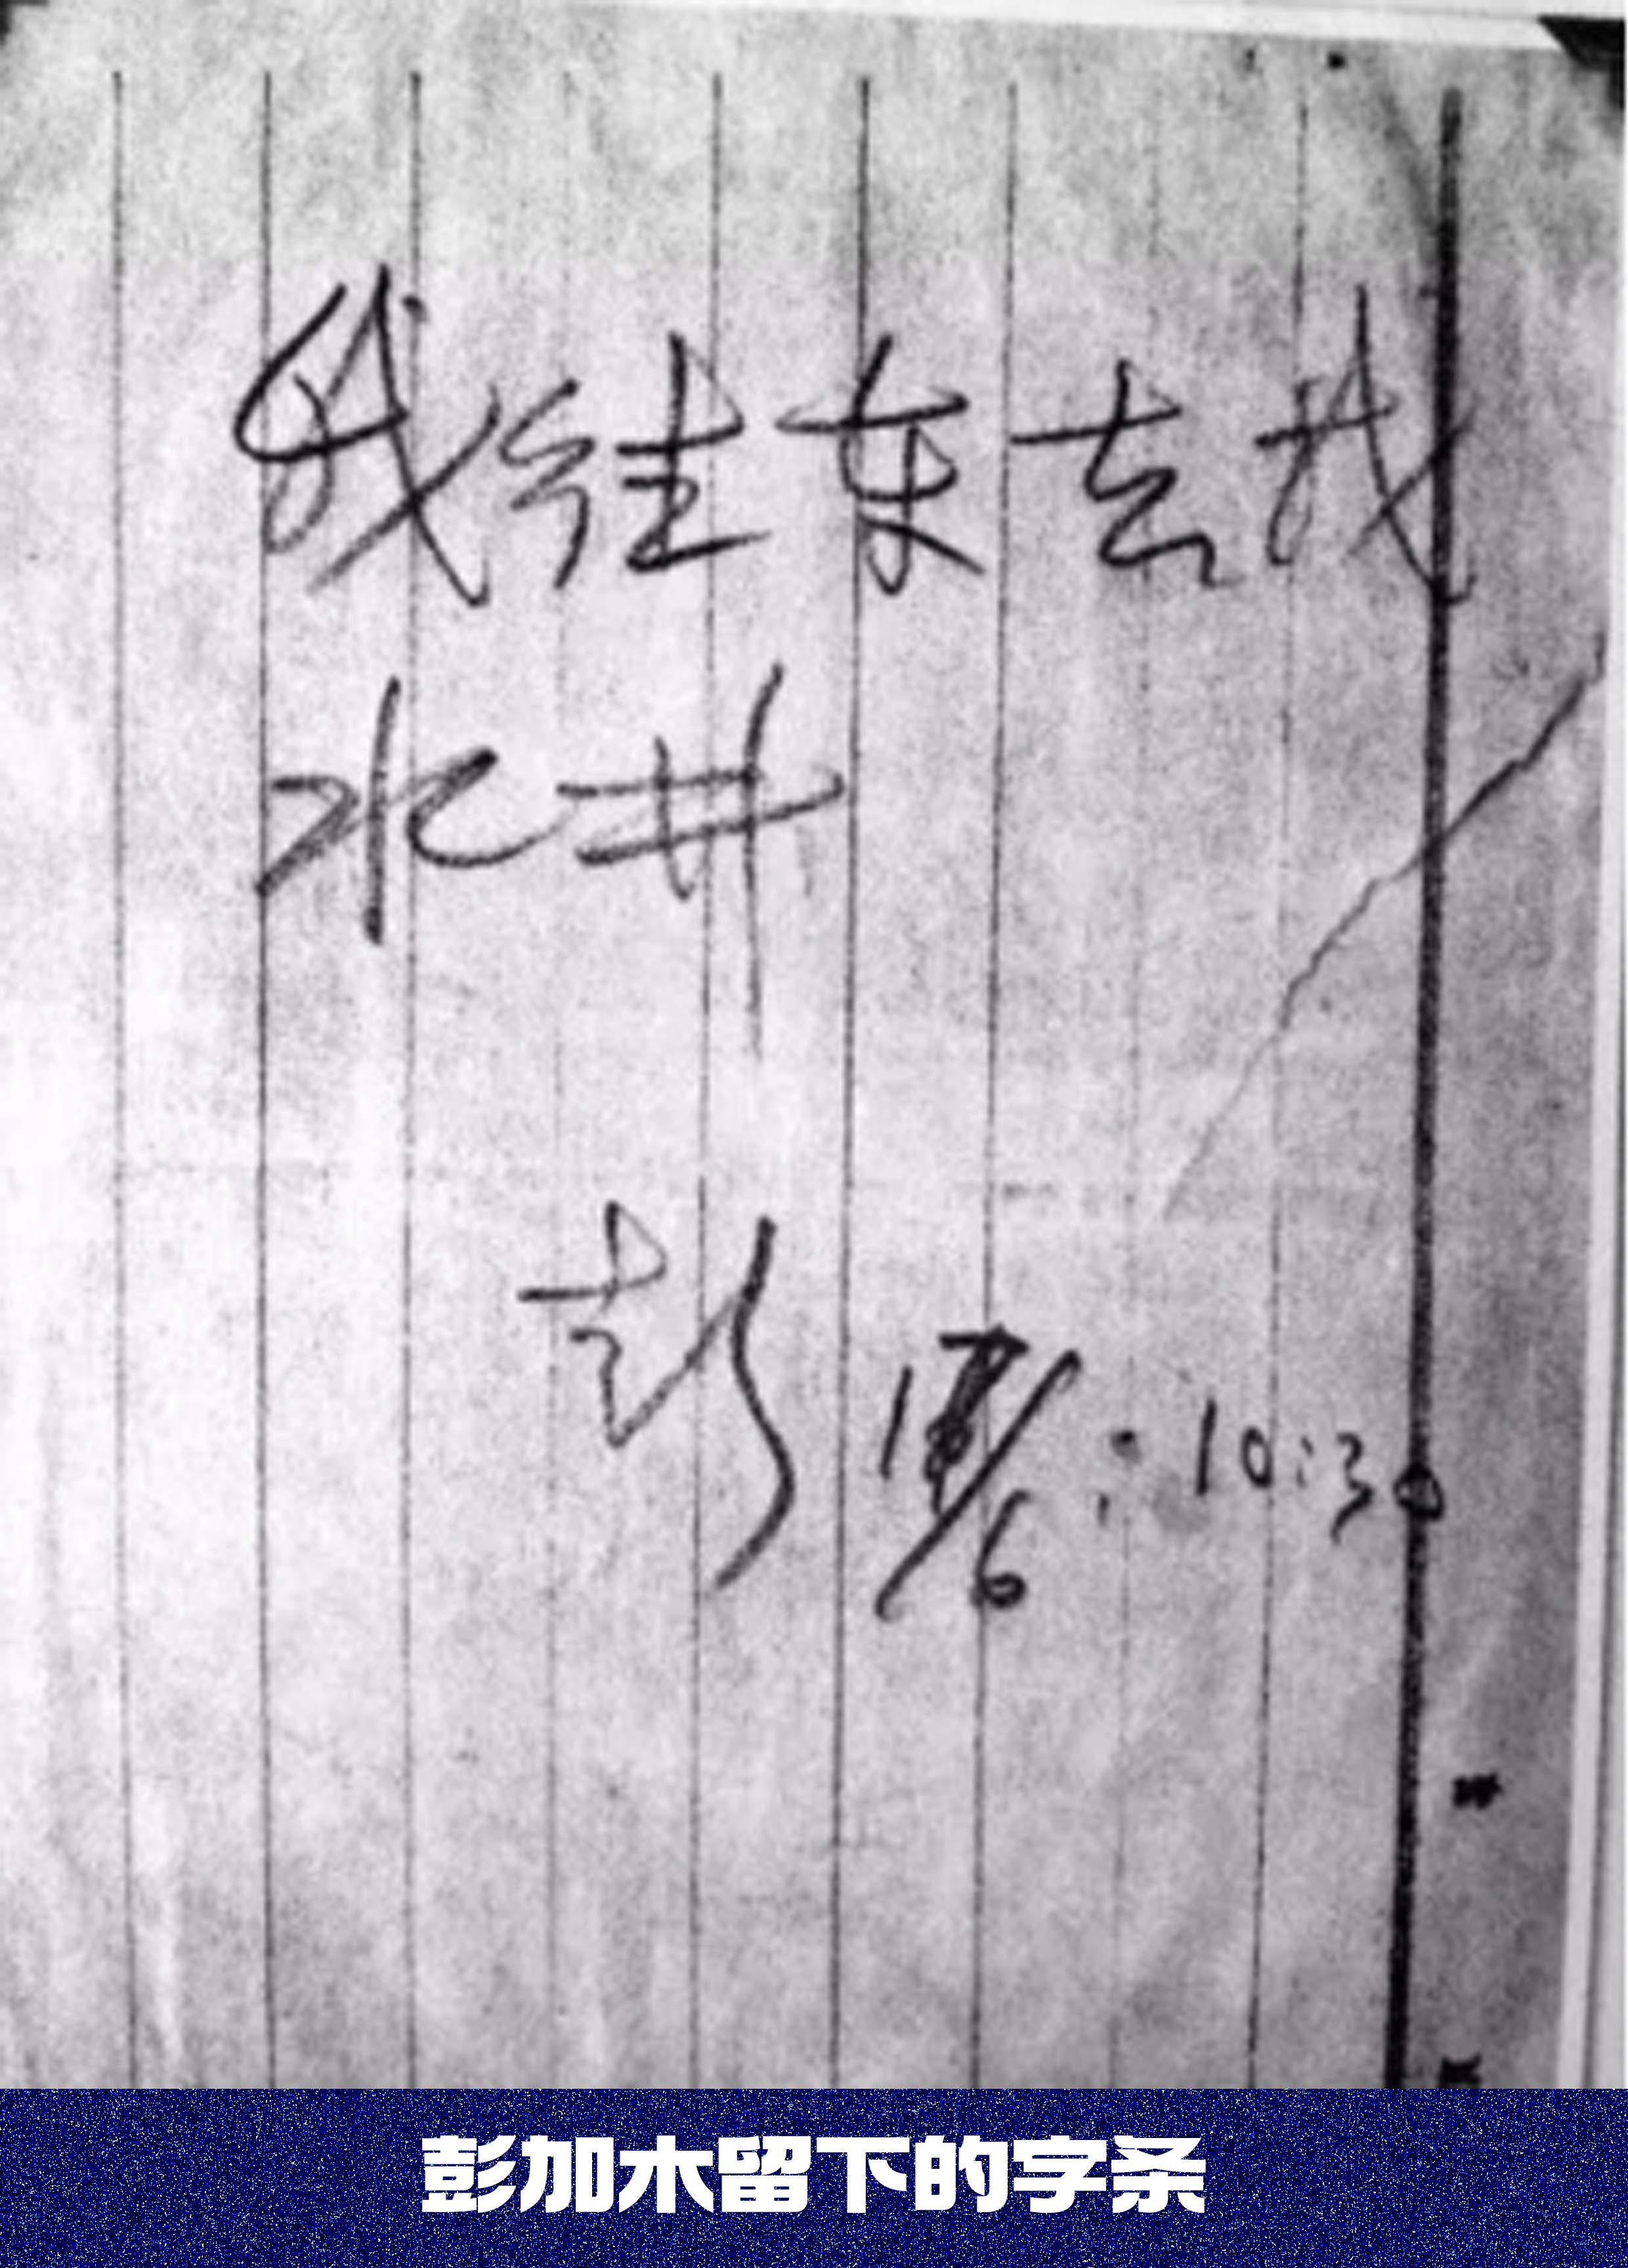 我往东去找
水井
彭 17/6:10:30
彭加木留下的字条